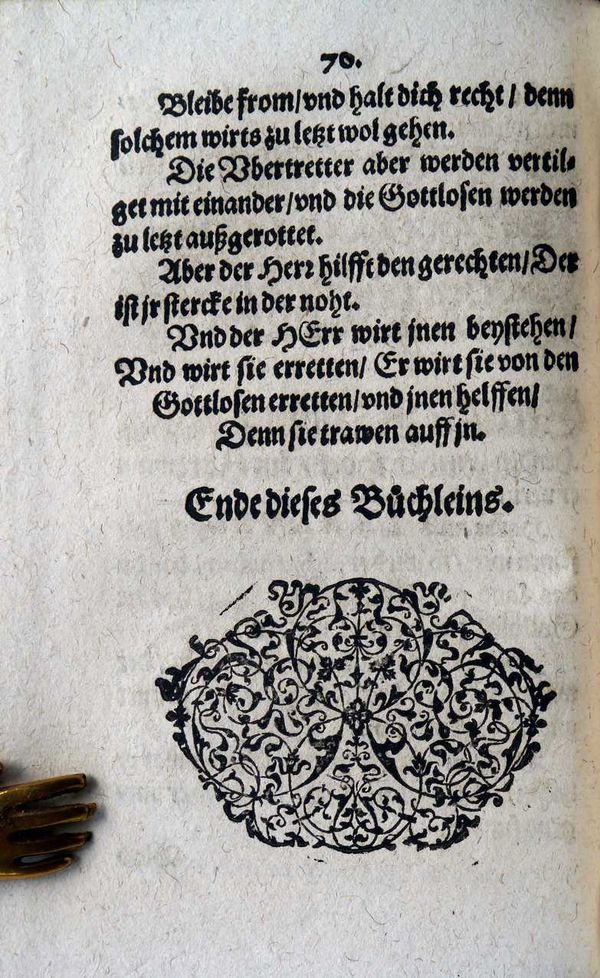 70.
Bleibe from/vnd halt dich recht/ denn
solchem wirts zu letzt wol gehen.
Die Vbertretter aber werden vertil-
get mit einander/vnd die Gottlosen werden
zu letzt außgerottet.
Aber der Herr hilfft den gerechten/Der
ist jr stercke in der noht.
Vnd der HErr wirt jnen beystehen/
Vnd wirt sie erretten/ Er wirt sie von den
Gottlosen erretten/vnd jnen helffen/
Denn sie trawen auff jn.
Ende dieses Bůchleins.